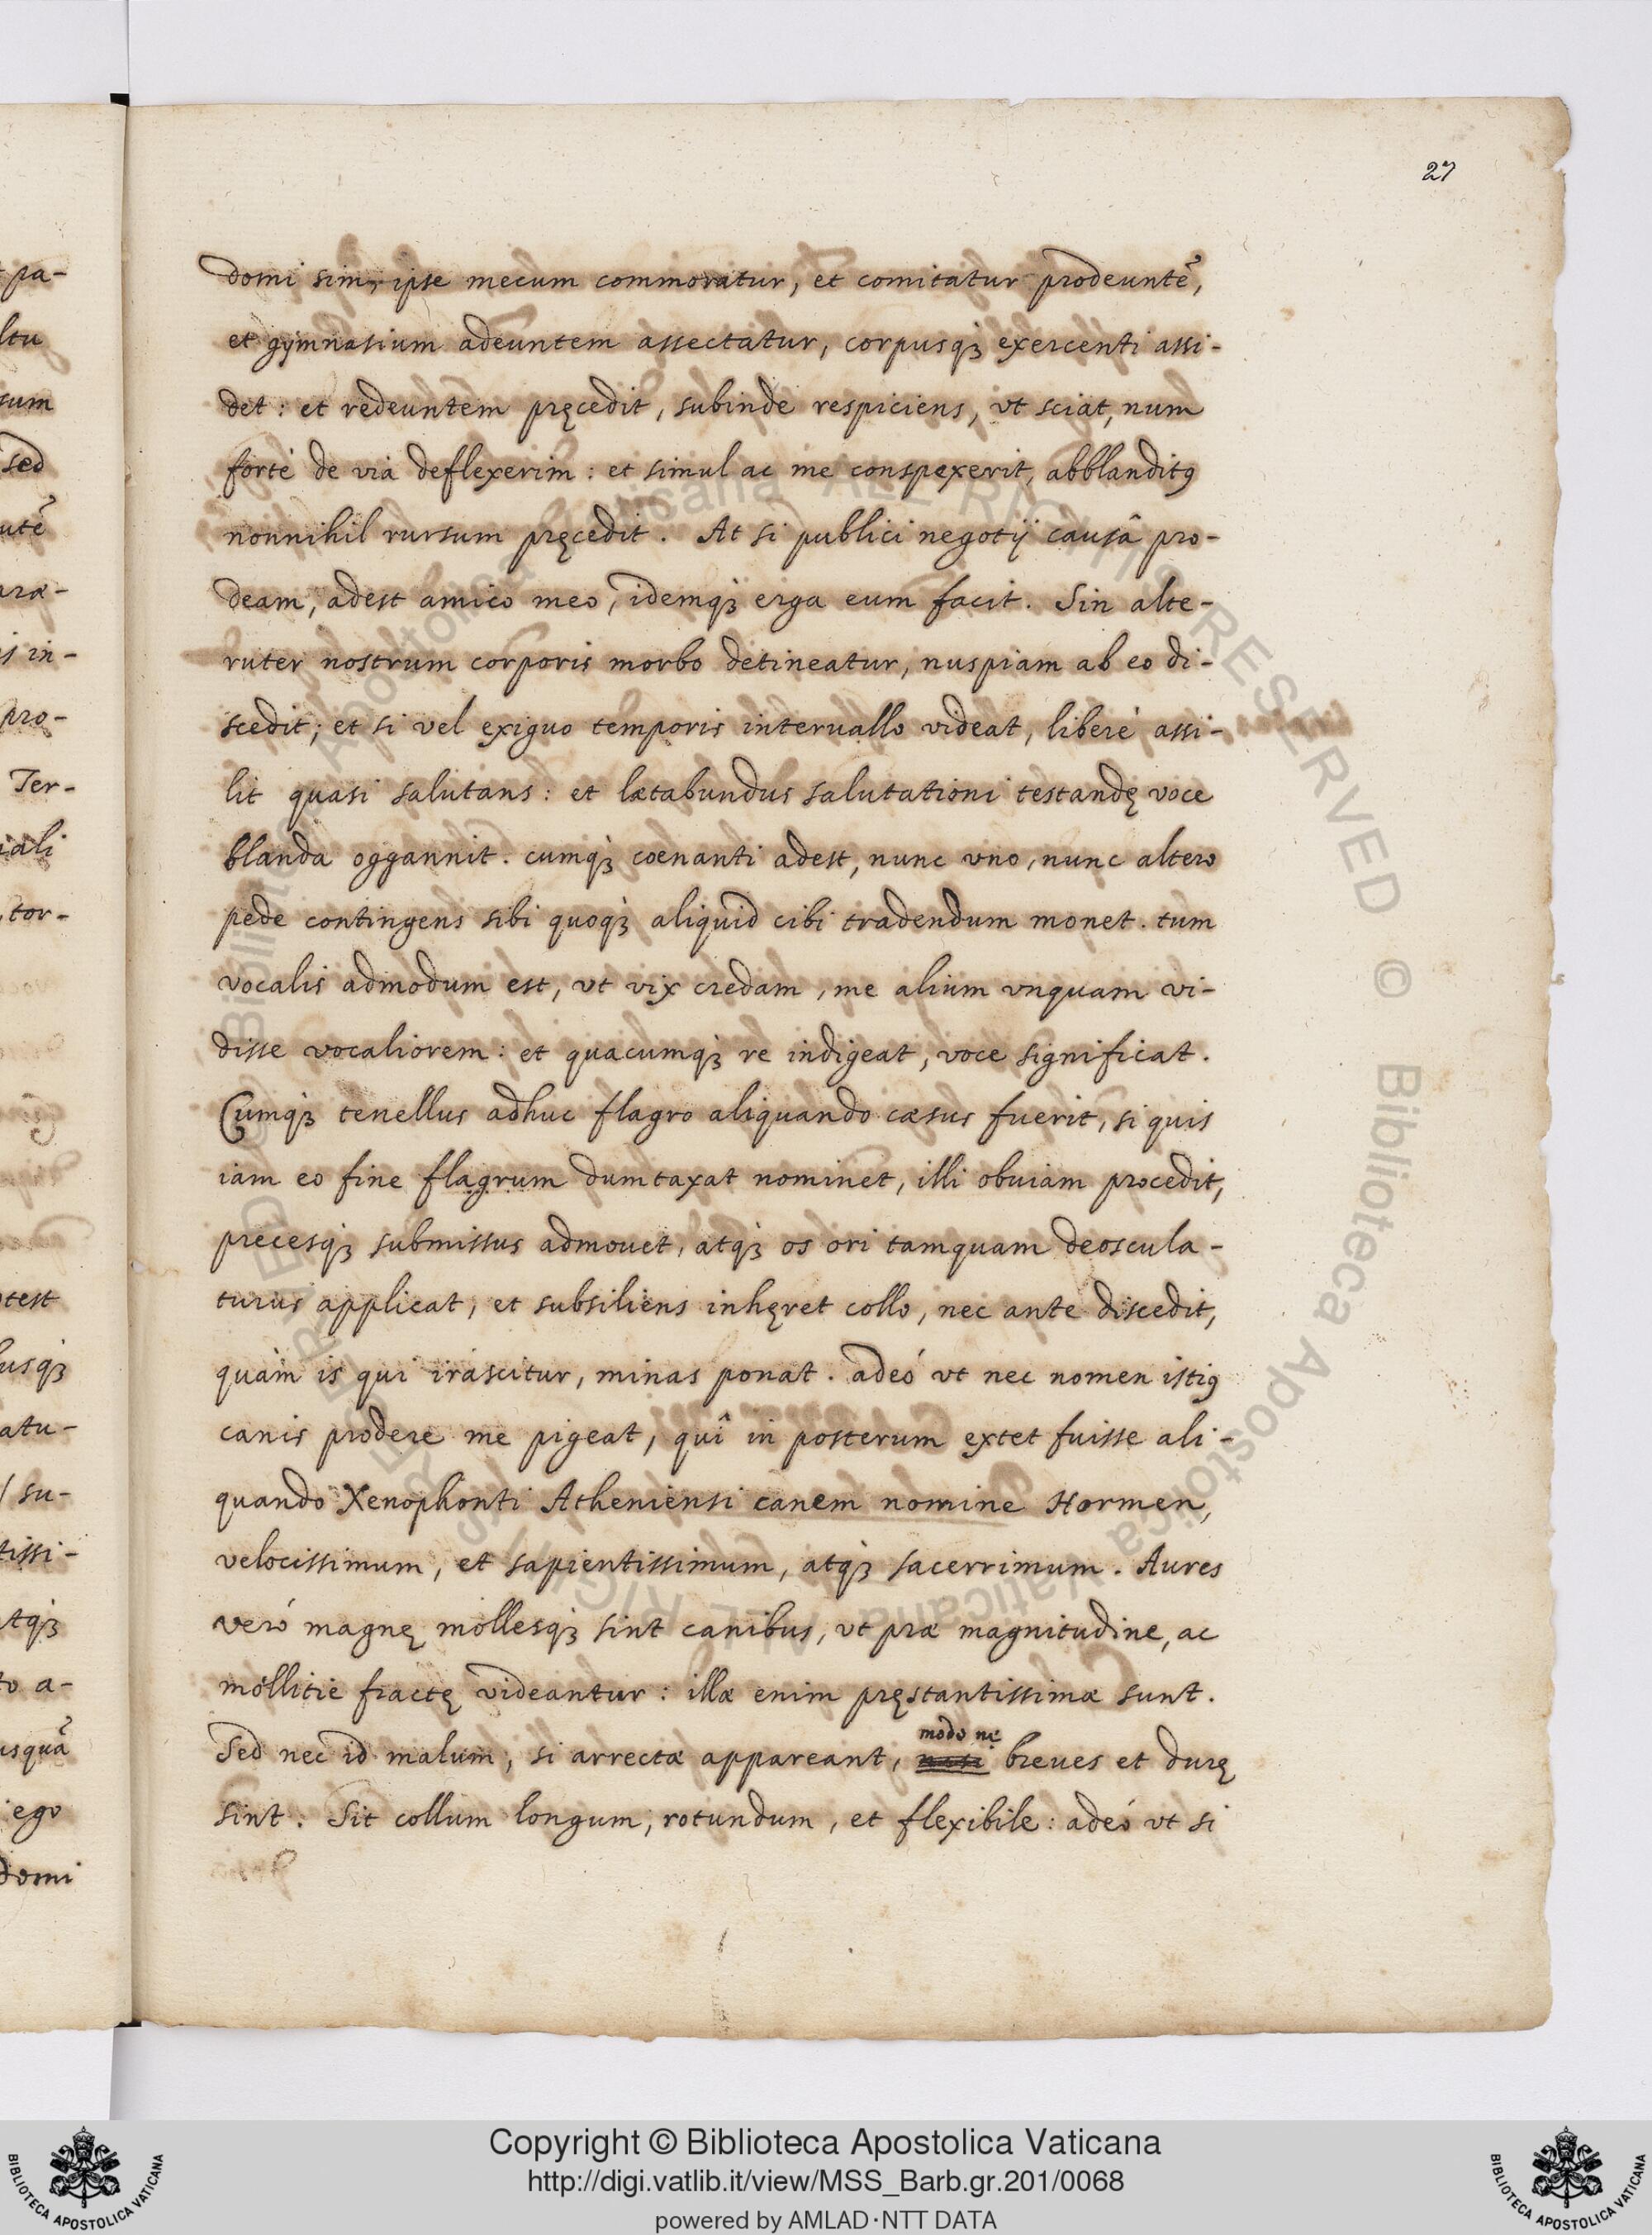 27
domi sim, ipse mecum commoratur, et comitatur prodeuntē,
et gymnasium adeuntem assectatur, corpusq́ꝫ exercenti assi-
det: et redeuntem pręcedit, subinde respiciens, vt sciat, num
fortè de via deflexerim: et simul ac me conspexerit, abblanditꝰ
nonnihil rursum pręcedit. At si publici negotij causâ pro-
deam, adest amico meo, idemq́ꝫ erga eum facit. Sin alte-
ruter nostrum corporis morbo detineatur, nuspiam ab eo di-
scedit; et si vel exiguo temporis interuallo videat, liberè assi-
lit quasi salutans: et lætabundus salutationi testandę voce
blanda oggannit. cumq́ꝫ cœnanti adest, nunc vno, nunc altero
pede contingens sibi quoq́ꝫ aliquid cibi tradendum monet. tum
vocalis admodum est, vt vix credam, me alium vnquam vi-
disse vocaliorem: et quacumq́ꝫ re indigeat, voce significat.
Cumq́ꝫ tenellus adhuc flagro aliquando cæsus fuerit, si quis
iam eo fine flagrum dumtaxat nominet, illi obuiam procedit,
precesq́ꝫ submissus admouet, atq́ꝫ os ori tamquam deoscula-
turus applicat, et subsiliens inhęret collo, nec ante discedit,
quàm is qui irascitur, minas ponat. adeó vt nec nomen istiꝰ
canis prodere me pigeat, quî in posterum extet fuisse ali-
quando Xenophonti Atheniensi canem nomine Hormen,
velocissimum, et sapientissimum, atq́ꝫ sacerrimum. Aures
veró magnę mollesq́ꝫ sint canibus, vt præ magnitudine, ac
mollitie fractę videantur: illæ enim pręstantissimæ sunt.
modo ne
Sed nec id malum, si arrectæ appareant, breues et durę
sint. Sit collum longum, rotundum, et flexibile: adeó vt si
pa-
ltu
sum
sed
utē
aræ-
is in-
pro-
Ter-
iali
tor-
test
usq́ꝫ
atu-
su-
tissi-
atq́ꝫ
to a-
usquā
ego
domi
© Biblioteca Apostolica Vaticana ALL RIGHTS RESERVED © Biblioteca Apostolica Vaticana ALL RIGHTS RESERVED
Copyright © Biblioteca Apostolica Vaticana
http://digi.vatlib.it/view/MSS_Barb.gr.201/0068
powered by AMLAD·NTT DATA
BIBLIOTECA APOSTOLICA VATICANA
BIBLIOTECA APOSTOLICA VATICANA